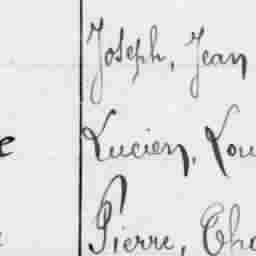 Joseph, Jean
Lucien, Lou
Pierre, Cha